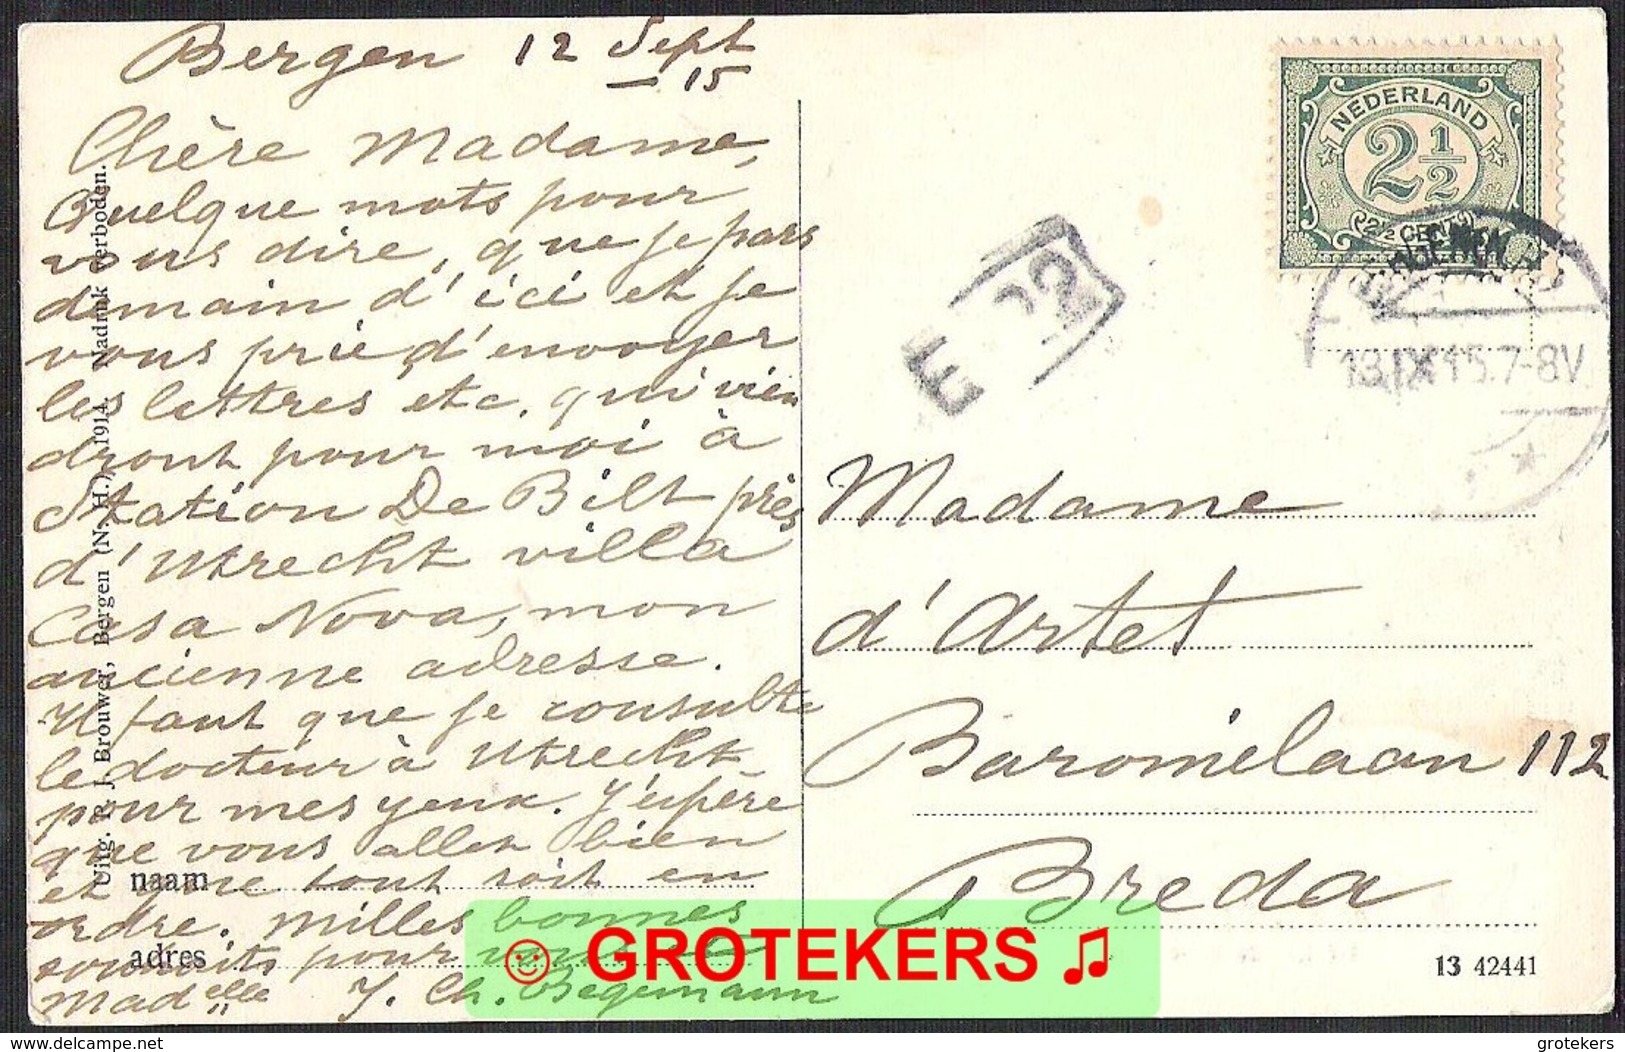 Bergen 12 Sept
15
Chère Madame,
Quelque mots pour
vous dire, que je pars
demain d'ici et je
vous prie, d'envoyer
les lettres etc. qui vien
dront pour moi à
Station De Bilt près
d'Utrecht villa
Casa Nova, mon
ancienne adresse.
Il faut que je consulte
le docteur à Utrecht
pour mes yeux. J'espère
que vous allez bien
et que tout soit en
ordre. Milles bonnes
souhaits pour vous
Madelle J. Ch. Begemann
naam
adres
Uitg. P. J. Brouwer, Bergen (N. H.) 1914. Nadruk verboden.
NEDERLAND
2 1/2
2 1/2 CENT
13.IX 15.7-8V
E 22
Madame
d'Artet
Baromielaan 112
Breda
13 42441
☺ GROTEKERS ♫
delcampe.net
grotekers